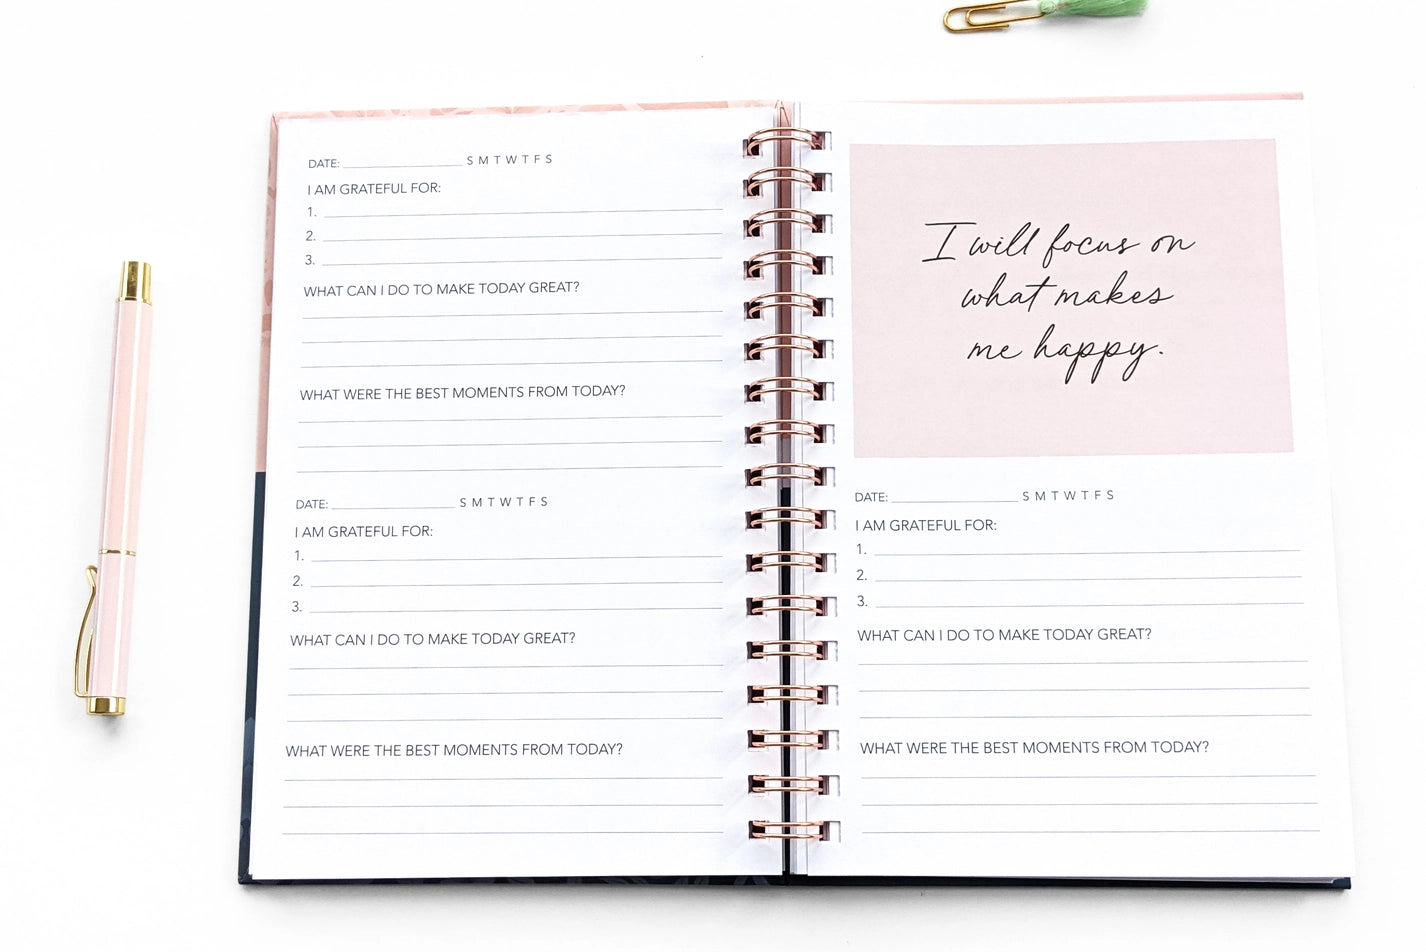 DATE: ____________ S M T W T F S
I AM GRATEFUL FOR:
1.
2.
3.
WHAT CAN I DO TO MAKE TODAY GREAT?
WHAT WERE THE BEST MOMENTS FROM TODAY?
DATE: ____________ S M T W T F S
I AM GRATEFUL FOR:
1.
2.
3.
WHAT CAN I DO TO MAKE TODAY GREAT?
WHAT WERE THE BEST MOMENTS FROM TODAY?
I will focus on
what makes
me happy.
DATE: ____________ S M T W T F S
I AM GRATEFUL FOR:
1.
2.
3.
WHAT CAN I DO TO MAKE TODAY GREAT?
WHAT WERE THE BEST MOMENTS FROM TODAY?